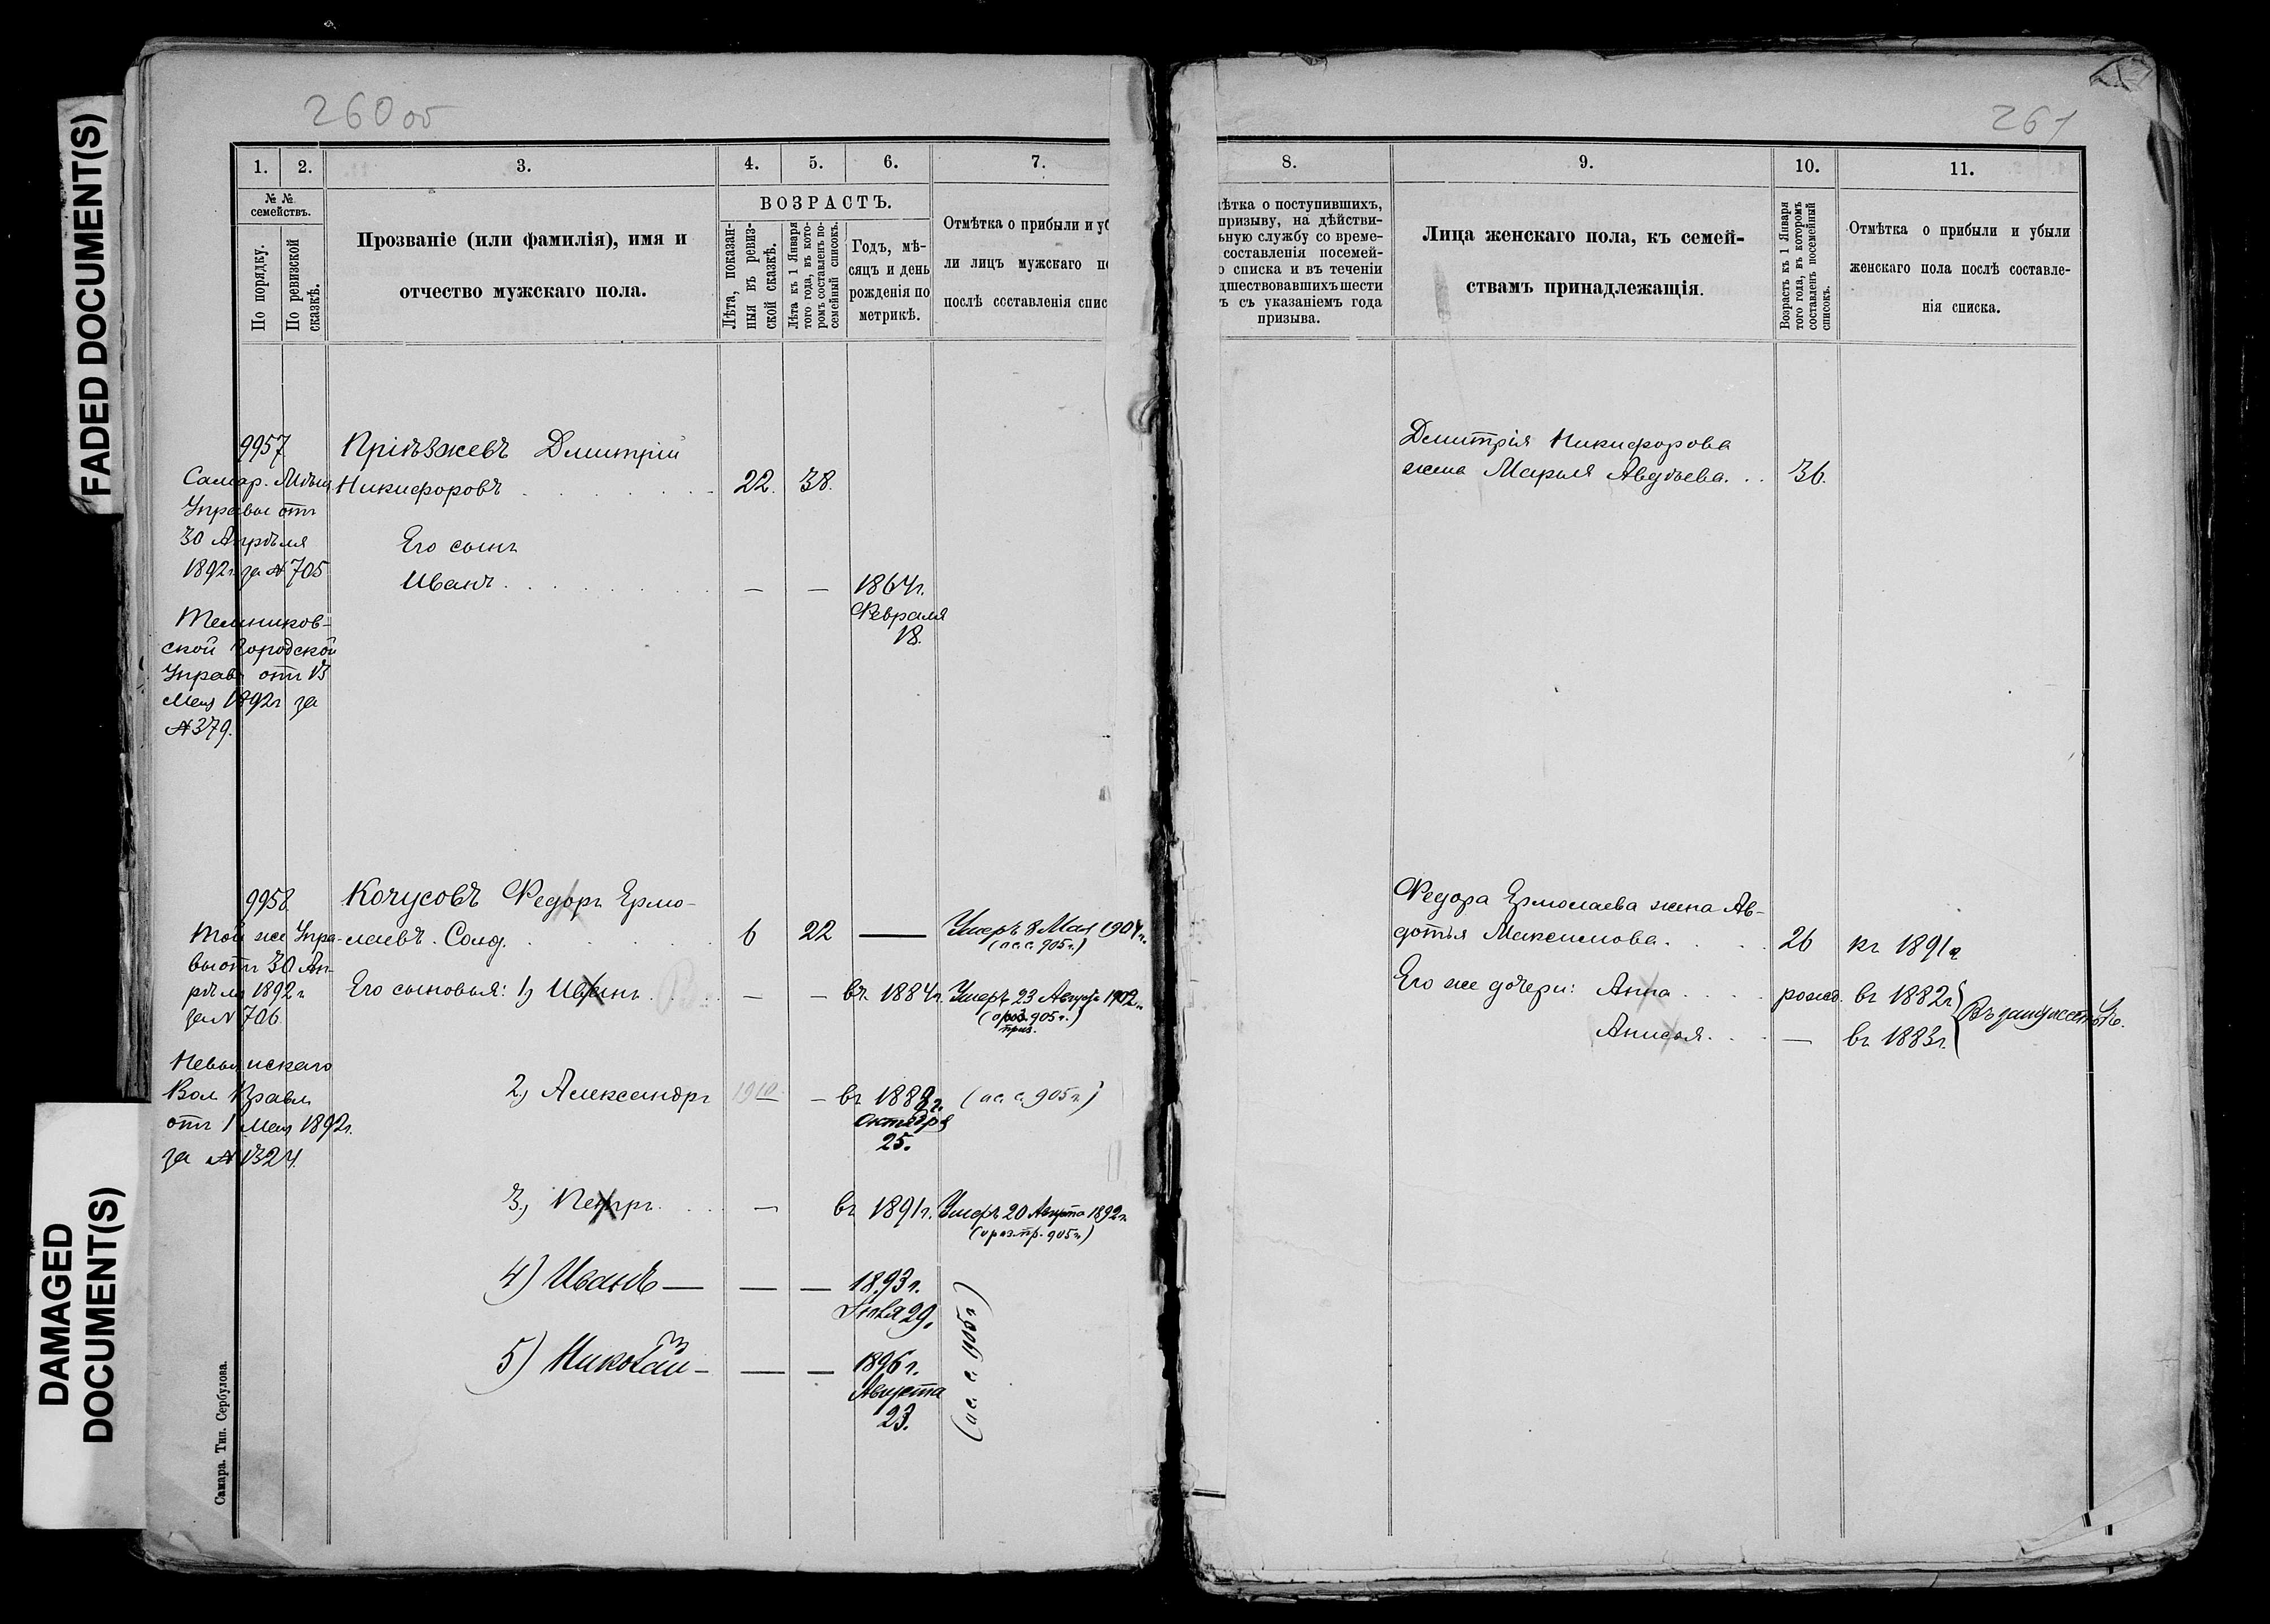 FADED DOCUMENT(S)
DAMAGED
DOCUMENT(S)
260 об
1. 2. 3. 4. 5. 6. 7.
№ №
семействъ.
По порядку.
По ревизской
сказкѣ.
Прозваніе (или фамилія), имя и
отчество мужскаго пола.
ВОЗРАСТЪ.
Лѣта, показан-
ныя въ ревиз-
ской сказкѣ.
Лѣта къ 1 Января
того года, въ кото-
ромъ составленъ по-
семейный списокъ.
Годъ, мѣ-
сяцъ и день
рожденія по
метрикѣ.
Отмѣтка о прибыли и уб
ли лицъ мужскаго по
послѣ составленія спис
9957
Самар. Мѣщ.
Управы отъ
30 Апрѣля
1892г. за № 705
ской Городской
Управ отъ 13
Мая 1892г за
№ 379.
Пріѣзжевъ Дмитрій
Никифоровъ 22. 38.
Его сынъ
Иванъ — — 1864г.
Февраля
18.
9958.
Той же Упра-
вы отъ 30 Ап-
рѣля 1892г
за № 706
Вол. Правл.
отъ 1 Мая 1892г.
за № 1324.
Кочусовъ Федоръ Ермо-
лаевъ. Солд. 6 22 — Умеръ 8 Мая 1904г.
(ос. с. 905г.)
Его сыновья: 1) Иванъ — — въ 1884г. Умеръ 23 Августа 1902г.
(о роз. 905г.)
приз.
2) Александръ 1910 — въ 1888г. (ос. с. 905г.)
Октября
25.
3) Петръ — въ 1891г. Умеръ 20 Августа 1892г.
(о роз. пр. 905г.)
4) Иванъ — — — 1893г.
Іюля 29.
5) Николай — — — 1896г.
Августа
23.
(ос. с. 905г.)
Самара. Тип. Сербулова.
261
8. 9. 10. 11.
ѣтка о поступившихъ,
призыву, на дѣйстви-
ьную службу со време-
составленія посемей-
о списка и въ теченіи
дшествовавшихъ шести
ъ съ указаніемъ года
призыва.
Лица женскаго пола, къ семей-
ствамъ принадлежащія.
Возрастъ къ 1 Января
того года, въ которомъ
составленъ посемейный
списокъ.
Отмѣтка о прибыли и убыли
женскаго пола послѣ составле-
нія списка.
Дмитрія Никифорова
жена Марья Авдѣева. 36.
Федора Ермолаева жена Ав-
дотья Максимова. 26 къ 1891г
Его же дочери: Анна рожд. въ 1882г
Анисья. — въ 1883г.
Въ замужествѣ.